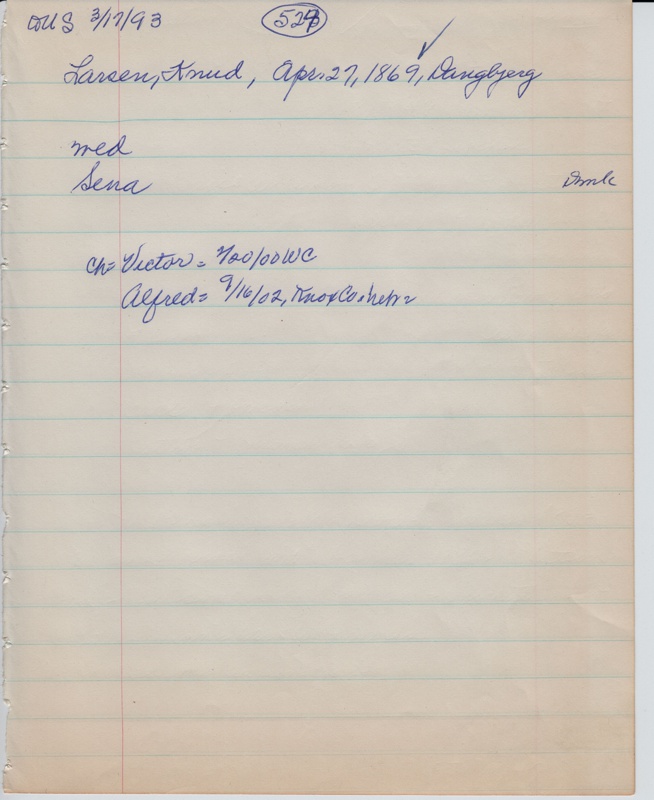 WUS 3/17/93
528
Larsen, Knud, Apr. 27, 1869, Dangbjerg
med
Sena
Dmk
Ch = Victor = 7/20/00 WC
Alfred = 9/16/02, Knox Co. Nebr =